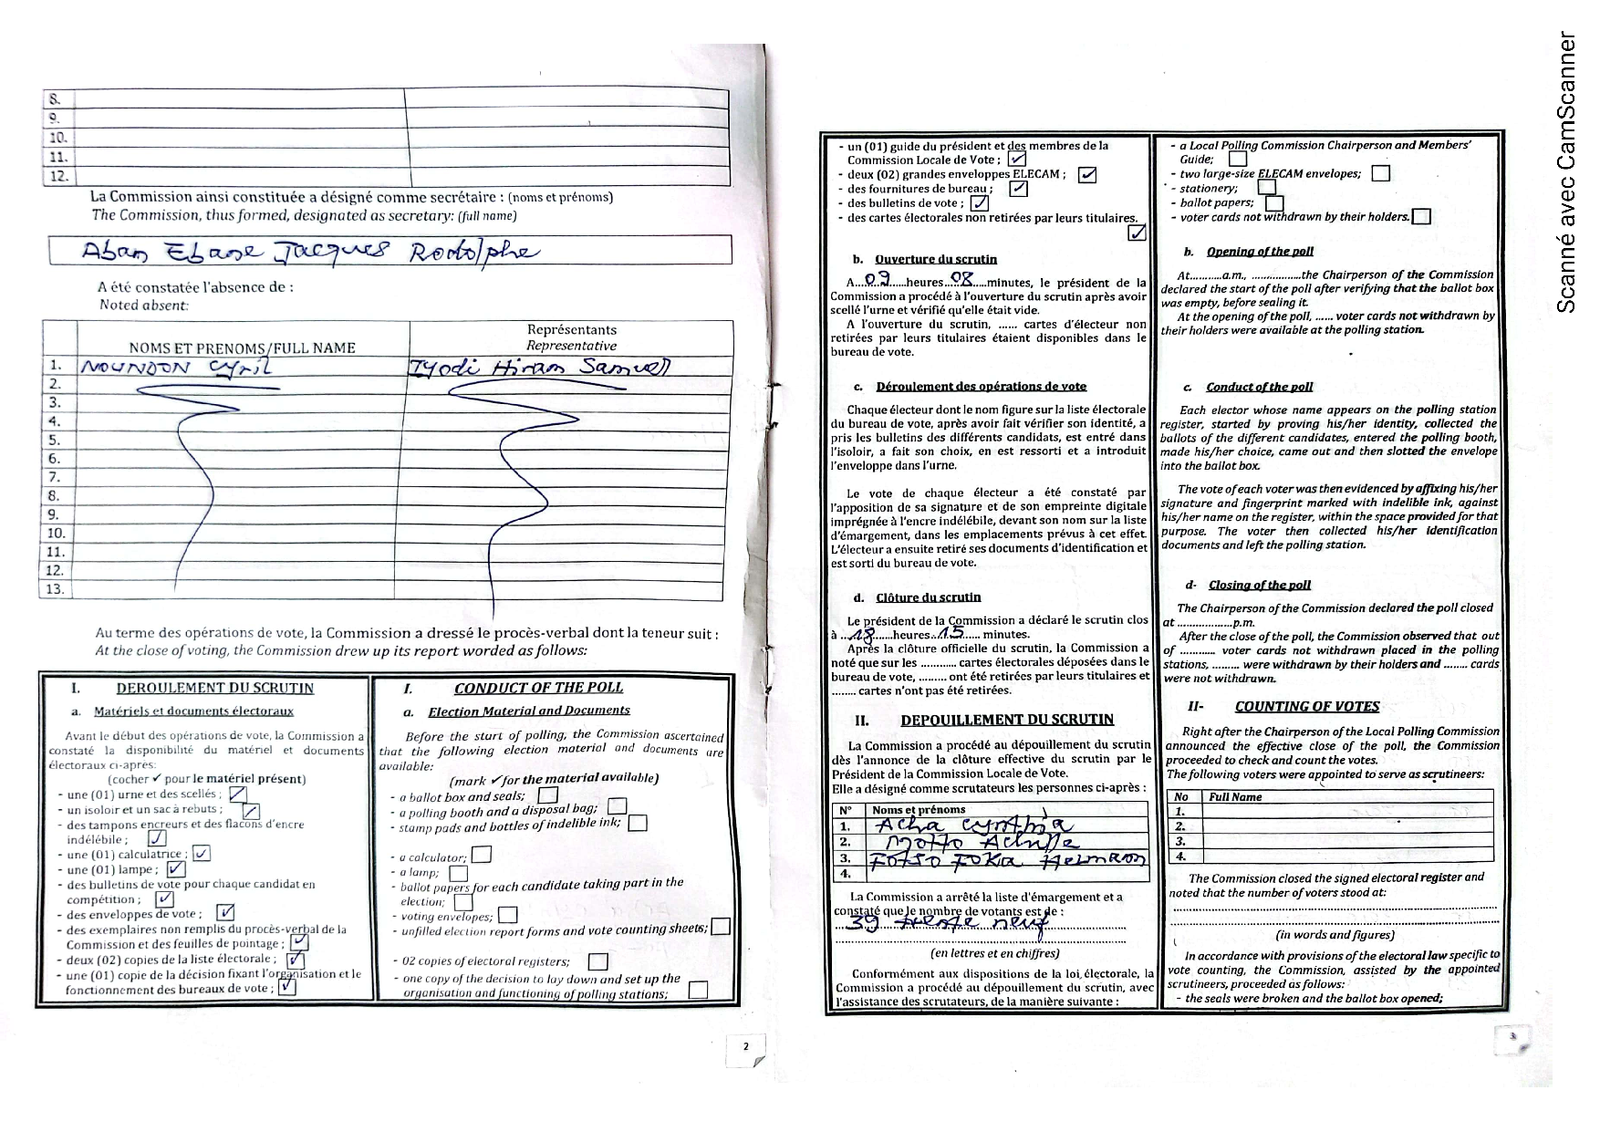 8.
9.
10.
11.
12.
La Commission ainsi constituée a désigné comme secrétaire : (noms et prénoms)
The Commission, thus formed, designated as secretary: (full name)
Aban Ebane Jacques Rodolphe
A été constatée l'absence de :
Noted absent:
NOMS ET PRENOMS/FULL NAME
Représentants
Representative
1. NOUNDON Cyril Tyodi Hiram Samuel
2.
3.
4.
5.
6.
7.
8.
9.
10.
11.
12.
13.
Au terme des opérations de vote, la Commission a dressé le procès-verbal dont la teneur suit :
At the close of voting, the Commission drew up its report worded as follows:
I. DEROULEMENT DU SCRUTIN
a. Matériels et documents électoraux
Avant le début des opérations de vote, la Commission a
constaté la disponibilité du matériel et documents
électoraux ci-après:
(cocher ✓ pour le matériel présent)
- une (01) urne et des scellés ; ☑
- un isoloir et un sac à rebuts ; ☑
- des tampons encreurs et des flacons d'encre
indélébile ; ☑
- une (01) calculatrice ; ☑
- une (01) lampe ; ☑
- des bulletins de vote pour chaque candidat en
compétition ; ☑
- des enveloppes de vote ; ☑
- des exemplaires non remplis du procès-verbal de la
Commission et des feuilles de pointage ; ☑
- deux (02) copies de la liste électorale ; ☑
- une (01) copie de la décision fixant l'organisation et le
fonctionnement des bureaux de vote ; ☑
I. CONDUCT OF THE POLL
a. Election Material and Documents
Before the start of polling, the Commission ascertained
that the following election material and documents are
available:
(mark ✓ for the material available)
- a ballot box and seals; ☐
- a polling booth and a disposal bag; ☐
- stamp pads and bottles of indelible ink; ☐
- a calculator; ☐
- a lamp; ☐
- ballot papers for each candidate taking part in the
election; ☐
- voting envelopes; ☐
- unfilled election report forms and vote counting sheets; ☐
- 02 copies of electoral registers; ☐
- one copy of the decision to lay down and set up the
organisation and functioning of polling stations; ☐
2
- un (01) guide du président et des membres de la
Commission Locale de Vote ; ☑
- deux (02) grandes enveloppes ELECAM ; ☑
- des fournitures de bureau ; ☑
- des bulletins de vote ; ☑
- des cartes électorales non retirées par leurs titulaires.
☑
b. Ouverture du scrutin
A...09.....heures...08......minutes, le président de la
Commission a procédé à l'ouverture du scrutin après avoir
scellé l'urne et vérifié qu'elle était vide.
A l'ouverture du scrutin, ...... cartes d'électeur non
retirées par leurs titulaires étaient disponibles dans le
bureau de vote.
c. Déroulement des opérations de vote
Chaque électeur dont le nom figure sur la liste électorale
du bureau de vote, après avoir fait vérifier son identité, a
pris les bulletins des différents candidats, est entré dans
l'isoloir, a fait son choix, en est ressorti et a introduit
l'enveloppe dans l'urne.
Le vote de chaque électeur a été constaté par
l'apposition de sa signature et de son empreinte digitale
imprégnée à l'encre indélébile, devant son nom sur la liste
d'émargement, dans les emplacements prévus à cet effet.
L'électeur a ensuite retiré ses documents d'identification et
est sorti du bureau de vote.
d. Clôture du scrutin
Le président de la Commission a déclaré le scrutin clos
à ...18.....heures..15..... minutes.
Après la clôture officielle du scrutin, la Commission a
noté que sur les ............ cartes électorales déposées dans le
bureau de vote, ......... ont été retirées par leurs titulaires et
........ cartes n'ont pas été retirées.
II. DEPOUILLEMENT DU SCRUTIN
La Commission a procédé au dépouillement du scrutin
dès l'annonce de la clôture effective du scrutin par le
Président de la Commission Locale de Vote.
Elle a désigné comme scrutateurs les personnes ci-après :
N° Noms et prénoms
1. Acha Cynthia
2. Motto Achille
3. FOTSO FOKA
4.
La Commission a arrêté la liste d'émargement et a
constaté que le nombre de votants est de :
39 trente neuf
(en lettres et en chiffres)
Conformément aux dispositions de la loi électorale, la
Commission a procédé au dépouillement du scrutin, avec
l'assistance des scrutateurs, de la manière suivante :
- a Local Polling Commission Chairperson and Members'
Guide; ☐
- two large-size ELECAM envelopes; ☐
- stationery; ☐
- ballot papers; ☐
- voter cards not withdrawn by their holders. ☐
b. Opening of the poll
At...........a.m., ..................the Chairperson of the Commission
declared the start of the poll after verifying that the ballot box
was empty, before sealing it.
At the opening of the poll, ...... voter cards not withdrawn by
their holders were available at the polling station.
c. Conduct of the poll
Each elector whose name appears on the polling station
register, started by proving his/her identity, collected the
ballots of the different candidates, entered the polling booth,
made his/her choice, came out and then slotted the envelope
into the ballot box.
The vote of each voter was then evidenced by affixing his/her
signature and fingerprint marked with indelible ink, against
his/her name on the register, within the space provided for that
purpose. The voter then collected his/her identification
documents and left the polling station.
d- Closing of the poll
The Chairperson of the Commission declared the poll closed
at ..................p.m.
After the close of the poll, the Commission observed that out
of ............ voter cards not withdrawn placed in the polling
stations, ......... were withdrawn by their holders and ........ cards
were not withdrawn.
II- COUNTING OF VOTES
Right after the Chairperson of the Local Polling Commission
announced the effective close of the poll, the Commission
proceeded to check and count the votes.
The following voters were appointed to serve as scrutineers:
No Full Name
1.
2.
3.
4.
The Commission closed the signed electoral register and
noted that the number of voters stood at:
(in words and figures)
In accordance with provisions of the electoral law specific to
vote counting, the Commission, assisted by the appointed
scrutineers, proceeded as follows:
- the seals were broken and the ballot box opened;
3
Scanné avec CamScanner